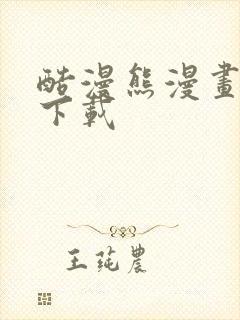 酷漫熊漫畫
下載
王莼農